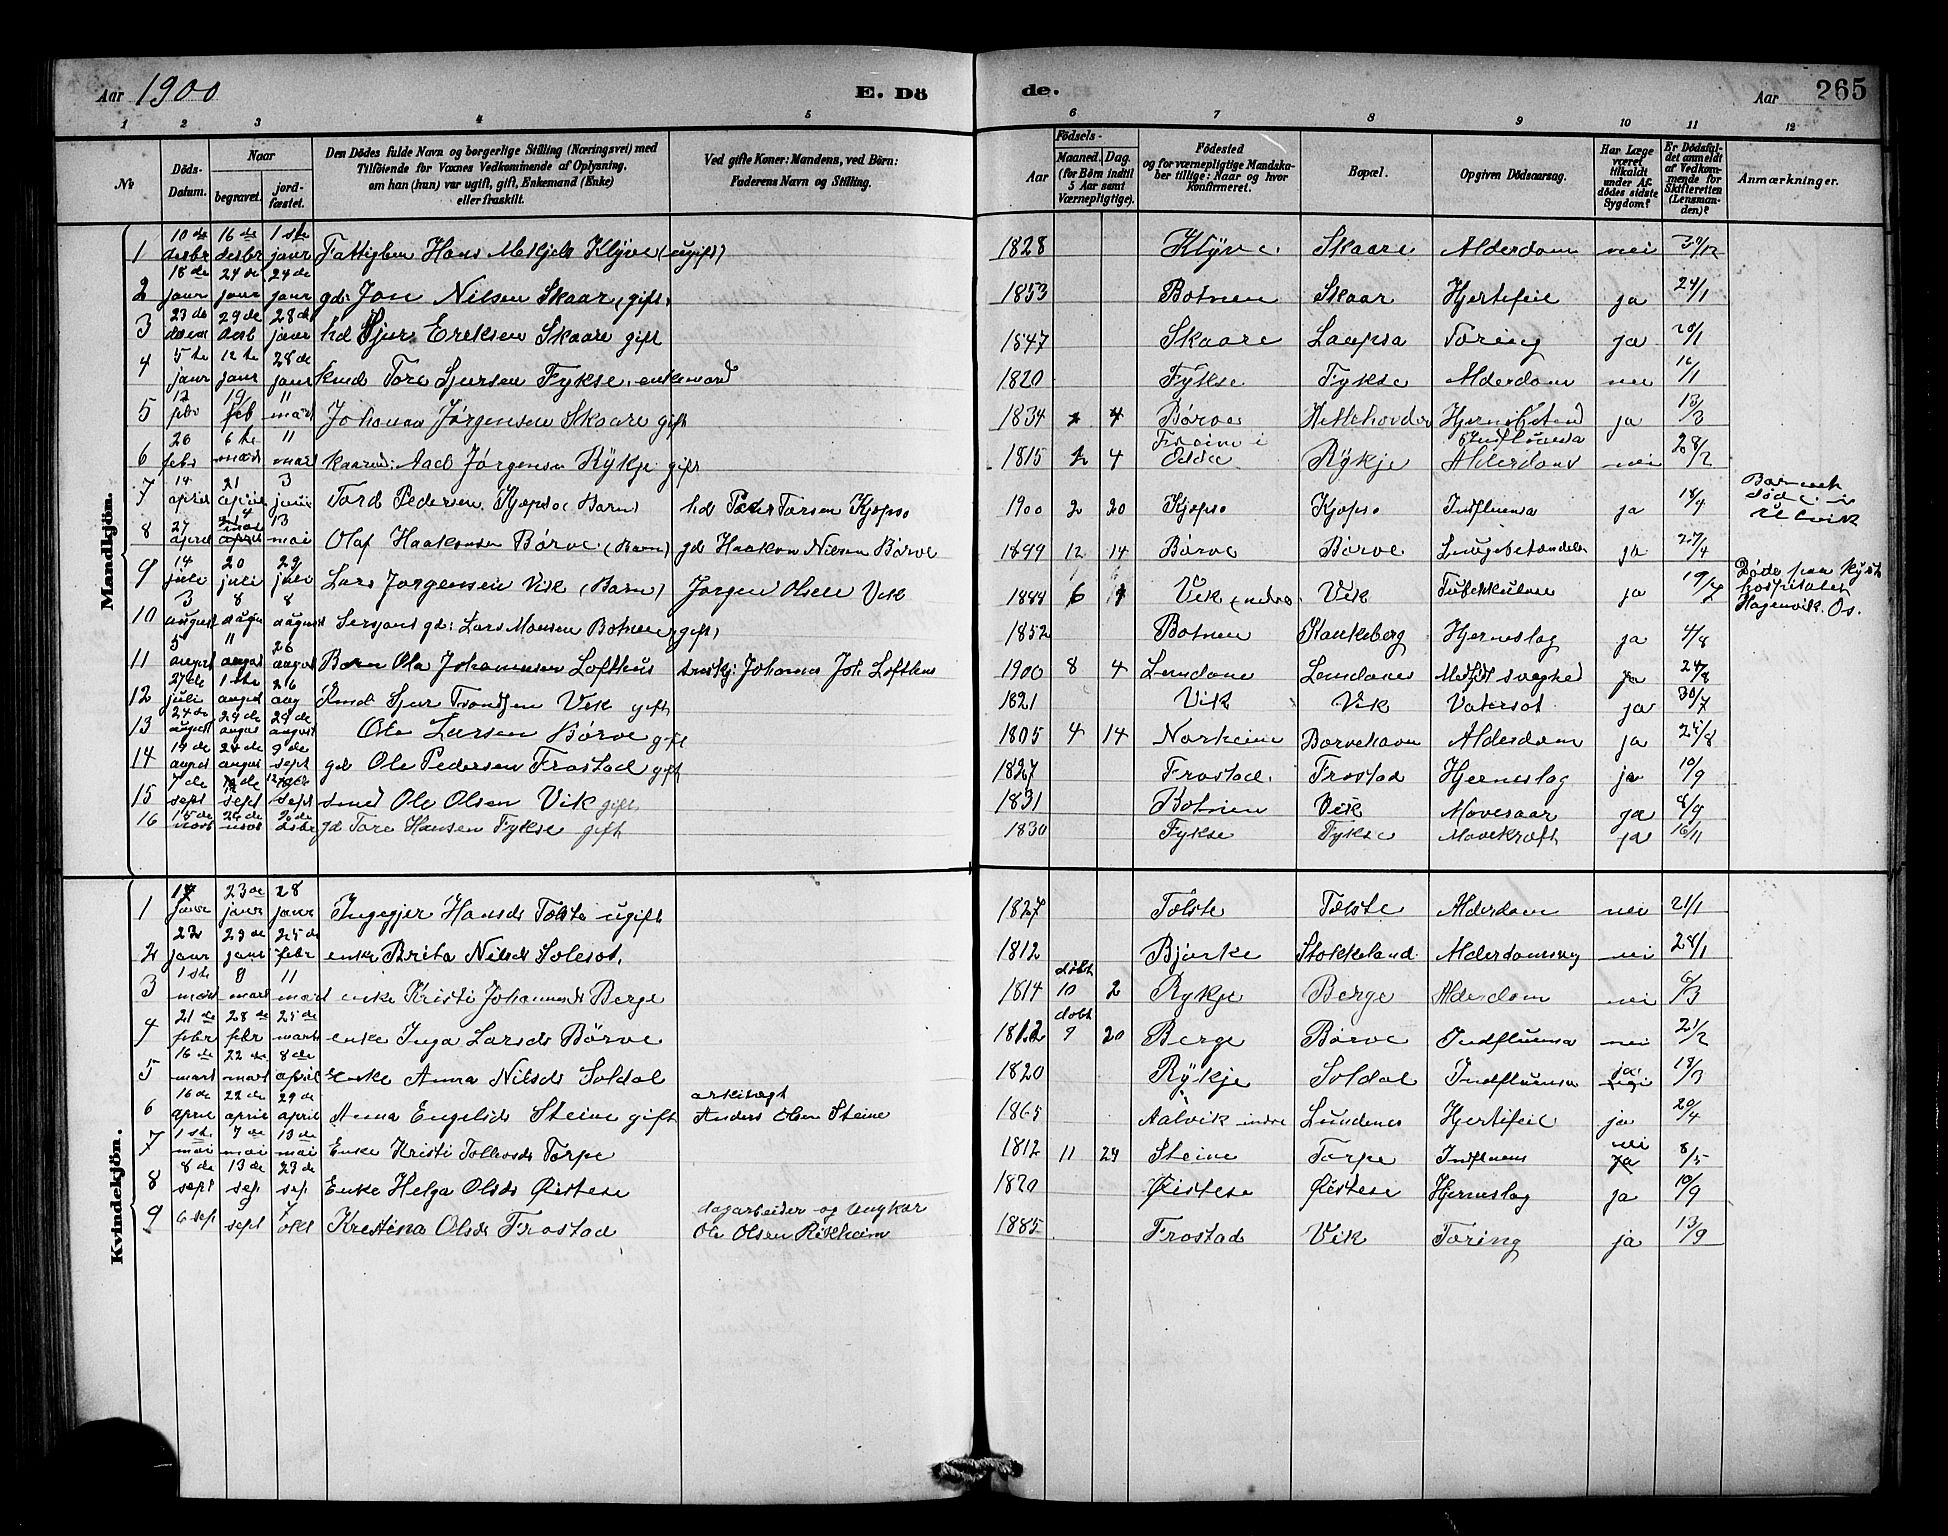 Aar 1900
E. Dö
de.
Aar
265
1 2 3 4 5 6 7 8 9 10 11 12
№
Döds-
Datum.
Naar
begravet.
jord-
fæstet.
Den Dödes fulde Navn og borgerlige Stilling (Næringsvei) med
Tilföiende for Voxnes Vedkommende af Oplysning,
om han (hun) var ugift, gift, Enkemand (Enke)
eller fraskilt.
Ved gifte Koner: Mandens, ved Börn:
Faderens Navn og Stilling.
Födsels-
Aar
Maaned. Dag.
(for Börn indtil
5 Aar samt
Værnepligtige).
Födested
og for værnepligtige Mandska-
ber tillige: Naar og hvor
Konfirmeret.
Bopæl.
Opgiven Dödsaarsag.
Har Læge
været
tilkaldt
under Af-
dödes sidste
Sygdom?
Er Dödsfal-
det anmeldt
af Vedkom-
mende for
Skifteretten
(Lensman-
den)?
Anmærkninger.
Mandkjön.
1 10de desbr 16de desbr 1ste janr Fattiglem Hans Klyve (ugift) 1828 Klyve Skaare Alderdom nei 30/12
2 18de janr 24de janr 24de janr gd: Jon Nilsen Skaar (gift) 1853 Botnen Skaar Hjertefeil ja 24/1
3 23de 29de 28de janr hd Sjur Eriksen Skaare gift 1847 Skaare Laupsa Tæring ja 20/1
4 5te janr 12te janr 28de janr Tore Sjursen Fykse, enkemand 1820 Fykse Fykse Alderdom nei /1
5 12 febr 19 feb 11 mars Johannes Jørgensen Skaare gift 1834 4 Børve ja 13/3
6 26 febr 6te mars 11 mars Aad Jørgensen Rykje gift 1815 2 4 Rykje Alderdoms nei 28/2
7 14 april 21 april 3 juni Tord Pedersen Kjepso (Barn) hd Peder Torsen Kjepso 1900 2 20 Kjepso Kjepso Indfluensa ja 18/4 døde i Ulvik
8 27 april 4 13 mai Olaf Haakonsen Børve (Barn) gd Haakon Nilsen Børve 1899 12 14 Børve Børve Lungebetændelse ja 27/4
9 14 juli 20 juli 29 juli Lars Jørgensen Vik (Barn) Jørgen Olsen Vik 1888 6 Vik Vik Tuberkulose ja 19/7 Døde paa Kyst hospitalet Hagevik. Os.
10 3 august 8 augu 8 august gd: Lars Monsen Botnen (gift) 1852 Botnen Kaukeberg Hjerneslag ja 4/8
11 5 august 11 august 26 august Barn Ola Johannessen Lofthus Johannes Joh. Lofthus 1900 8 4 svaghed ja 24/8
12 27de juli 1ste august 26 aug Sjur Trondsen Vik gift 1821 Vik Vik Vatersot ja 30/7
13 24de august 29de august 29de august Ole Larsen Børve gift 1805 4 14 Norheim Børvehavn Alderdom ja 25/8
14 19de august 24de august 9de sept gd Ole Pedersen Frostad gift 1827 Frostad Frostad Hjerneslag ja 10/9
15 7de sept de sept sept smed Ole Olsen Vik gift 1831 Botnen Vik Mavesaar ja 8/9
16 15de novb 24de novb de desbr gd Tore Hansen Fykse gift 1830 Fykse Fykse Mavekræft ja 16/11
Kvindekjön.
1 17 janr 23de janr 28 janr Ingegjer Hansd Tolste ugift 1827 Tolste Tolste Alderdom nei 21/1
2 23 janr 29de janr 25de febr enke Brita Nilsd Solesot, 1812 Bjørke Stokkeland Alderdomssvag nei 28/1
3 1ste mars 9 mars 11 mars enke Kristi Johannesd Berge 1814 døbt 10 2 Rykje Berge Alderdom nei 6/3
4 21de febr 28de febr 25de mars enke Inga Larsd Børve 1812 døbt 9 20 Berge Børve Indfluensa nei 21/2
5 16de mars 22de mars 8de april Enke Anna Nilsd Soldal 1820 Rykje Soldal Indfluensa ja 19/3
6 16de april 22de april 29de april Anna Engelsd Steine gift Anders Olsen Steine 1865 Aalvik indre Lundenes Hjertefeil ja 20/4
7 1ste mai 7de mai 13de mai Enke Kristi Tollevsd Torpe 1812 11 29 Steine Torpe Indfluens nei ja 8/5
8 8de sept 13de sep 23de sep Enke Helga Olsd Øistese 1820 Øistese Øistese Hjerneslag ja 10/9
9 6 sep 9 sept 7 okt Krestina Olsd Frostad dagarbeider og ungkar Ole Olsen Rikheim 1885 Frostad Vik Tæring ja 13/9